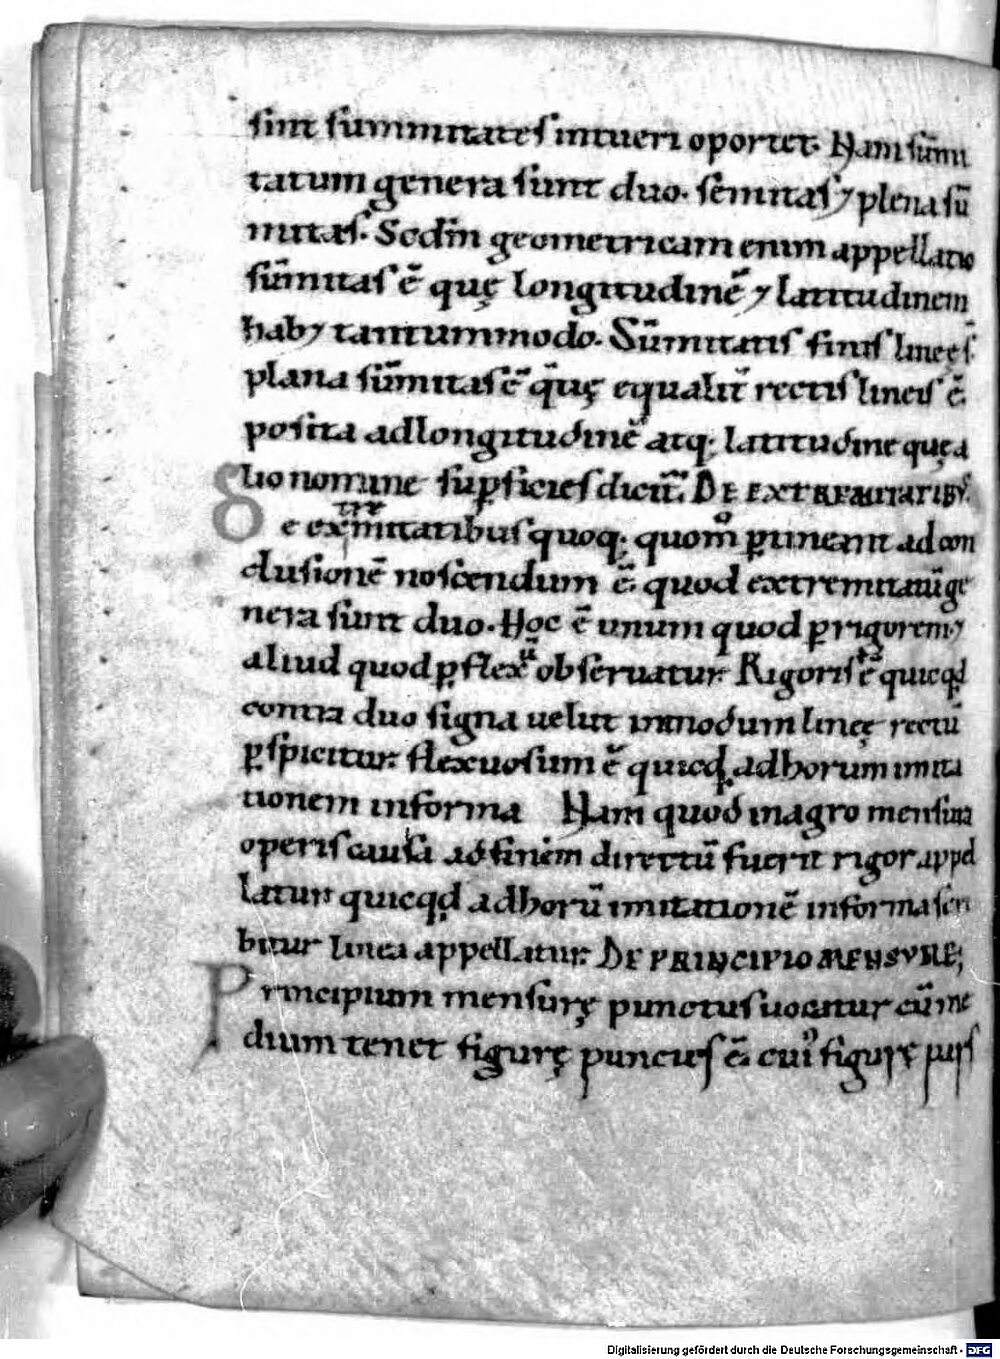 sint summitates intueri oportet. Nam sūmi
tatum genera sunt duo. semitas ⁊ plena sū
mitas. Scdm̄ geometricam enim appellatio
sūmitas ē quę longitudinē ⁊ latitudinem
hab⁊ tantummodo. Sūmitatis finis lineę s̄.
plana sūmitas ē q̄ quę equalit̄ rectis lineis ē
posita ad longitudinē atq; latitudine quę a
lio nomine suꝑficies dicit̄. DE EXTREMITATIBꝰ.
De extremitatibus quoq; quom̊ ꝑtineant ad con
clusionē noscendum ē. quod extremitatū ge
nera sunt duo. Hoc ē unum quod ꝑ rigorem ⁊
aliud quod ꝑ flexū obseruatur. Rigoris ē quicqd
contra duo signa uelut in modum lineę rectū
ꝑspicitur. flexuosum ē quicqd ad horum imita
tionem in forma Nam quod in agro mensura
operis causa ad finem directū fuerit rigor appel
latur quicqd ad horū imitationē in forma scri
bitur linea appellatur. DE PRINCIPIO MENSVRE;
Principium mensurę punctus uocatur cū me
dium tenet figurę puncus ē. cuiꝰ figurę pars
Digitalisierung gefördert durch die Deutsche Forschungsgemeinschaft - DFG